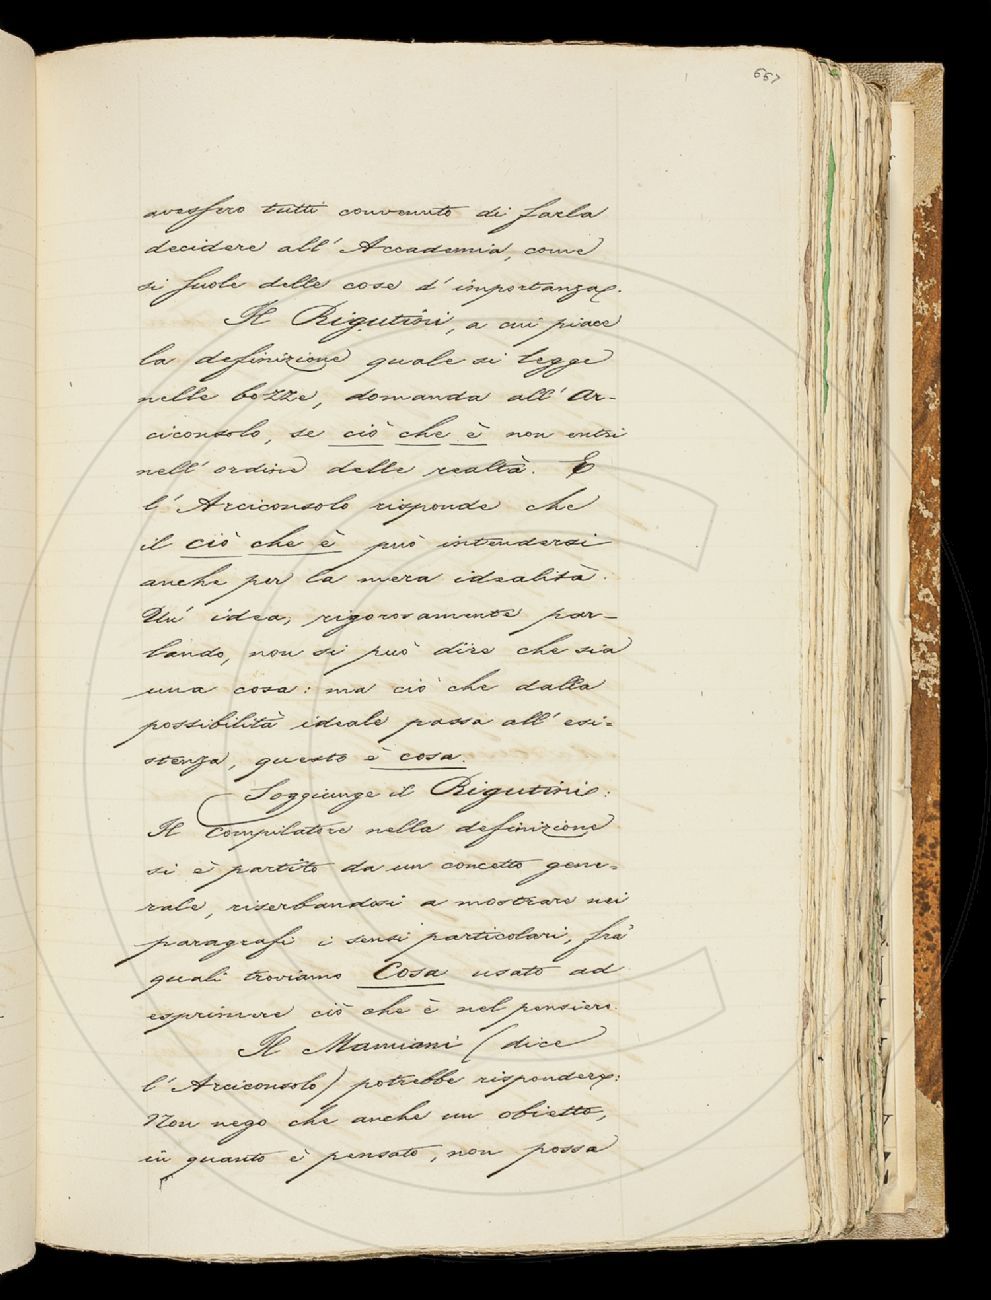 667
avessero tutti convenuto di farla
decidere all' Accademia, come
si suole delle cose d' importanza.
Il Rigutini, a cui piace
la definizione quale si legge
nelle bozze, domanda all' Ar-
ciconsolo, se ciò che è non entri
nell' ordine delle realtà. E
l' Arciconsolo risponde che
il ciò che è può intendersi
anche per la mera idealità.
Un' idea, rigorosamente par-
lando, non si può dire che sia
una cosa: ma ciò che dalla
possibilità ideale passa all' esi-
stenza, questo è cosa.
Soggiunge il Rigutini:
Il Compilatore nella definizione
si è partito da un concetto gene-
rale, riserbandosi a mostrare nei
paragrafi i sensi particolari, fra'
quali troviamo Cosa usato ad
esprimere ciò che è nel pensiero.
Il Mamiani (dice
l' Arciconsolo) potrebbe rispondere:
Non nego che anche un obietto,
in quanto è pensato, non possa